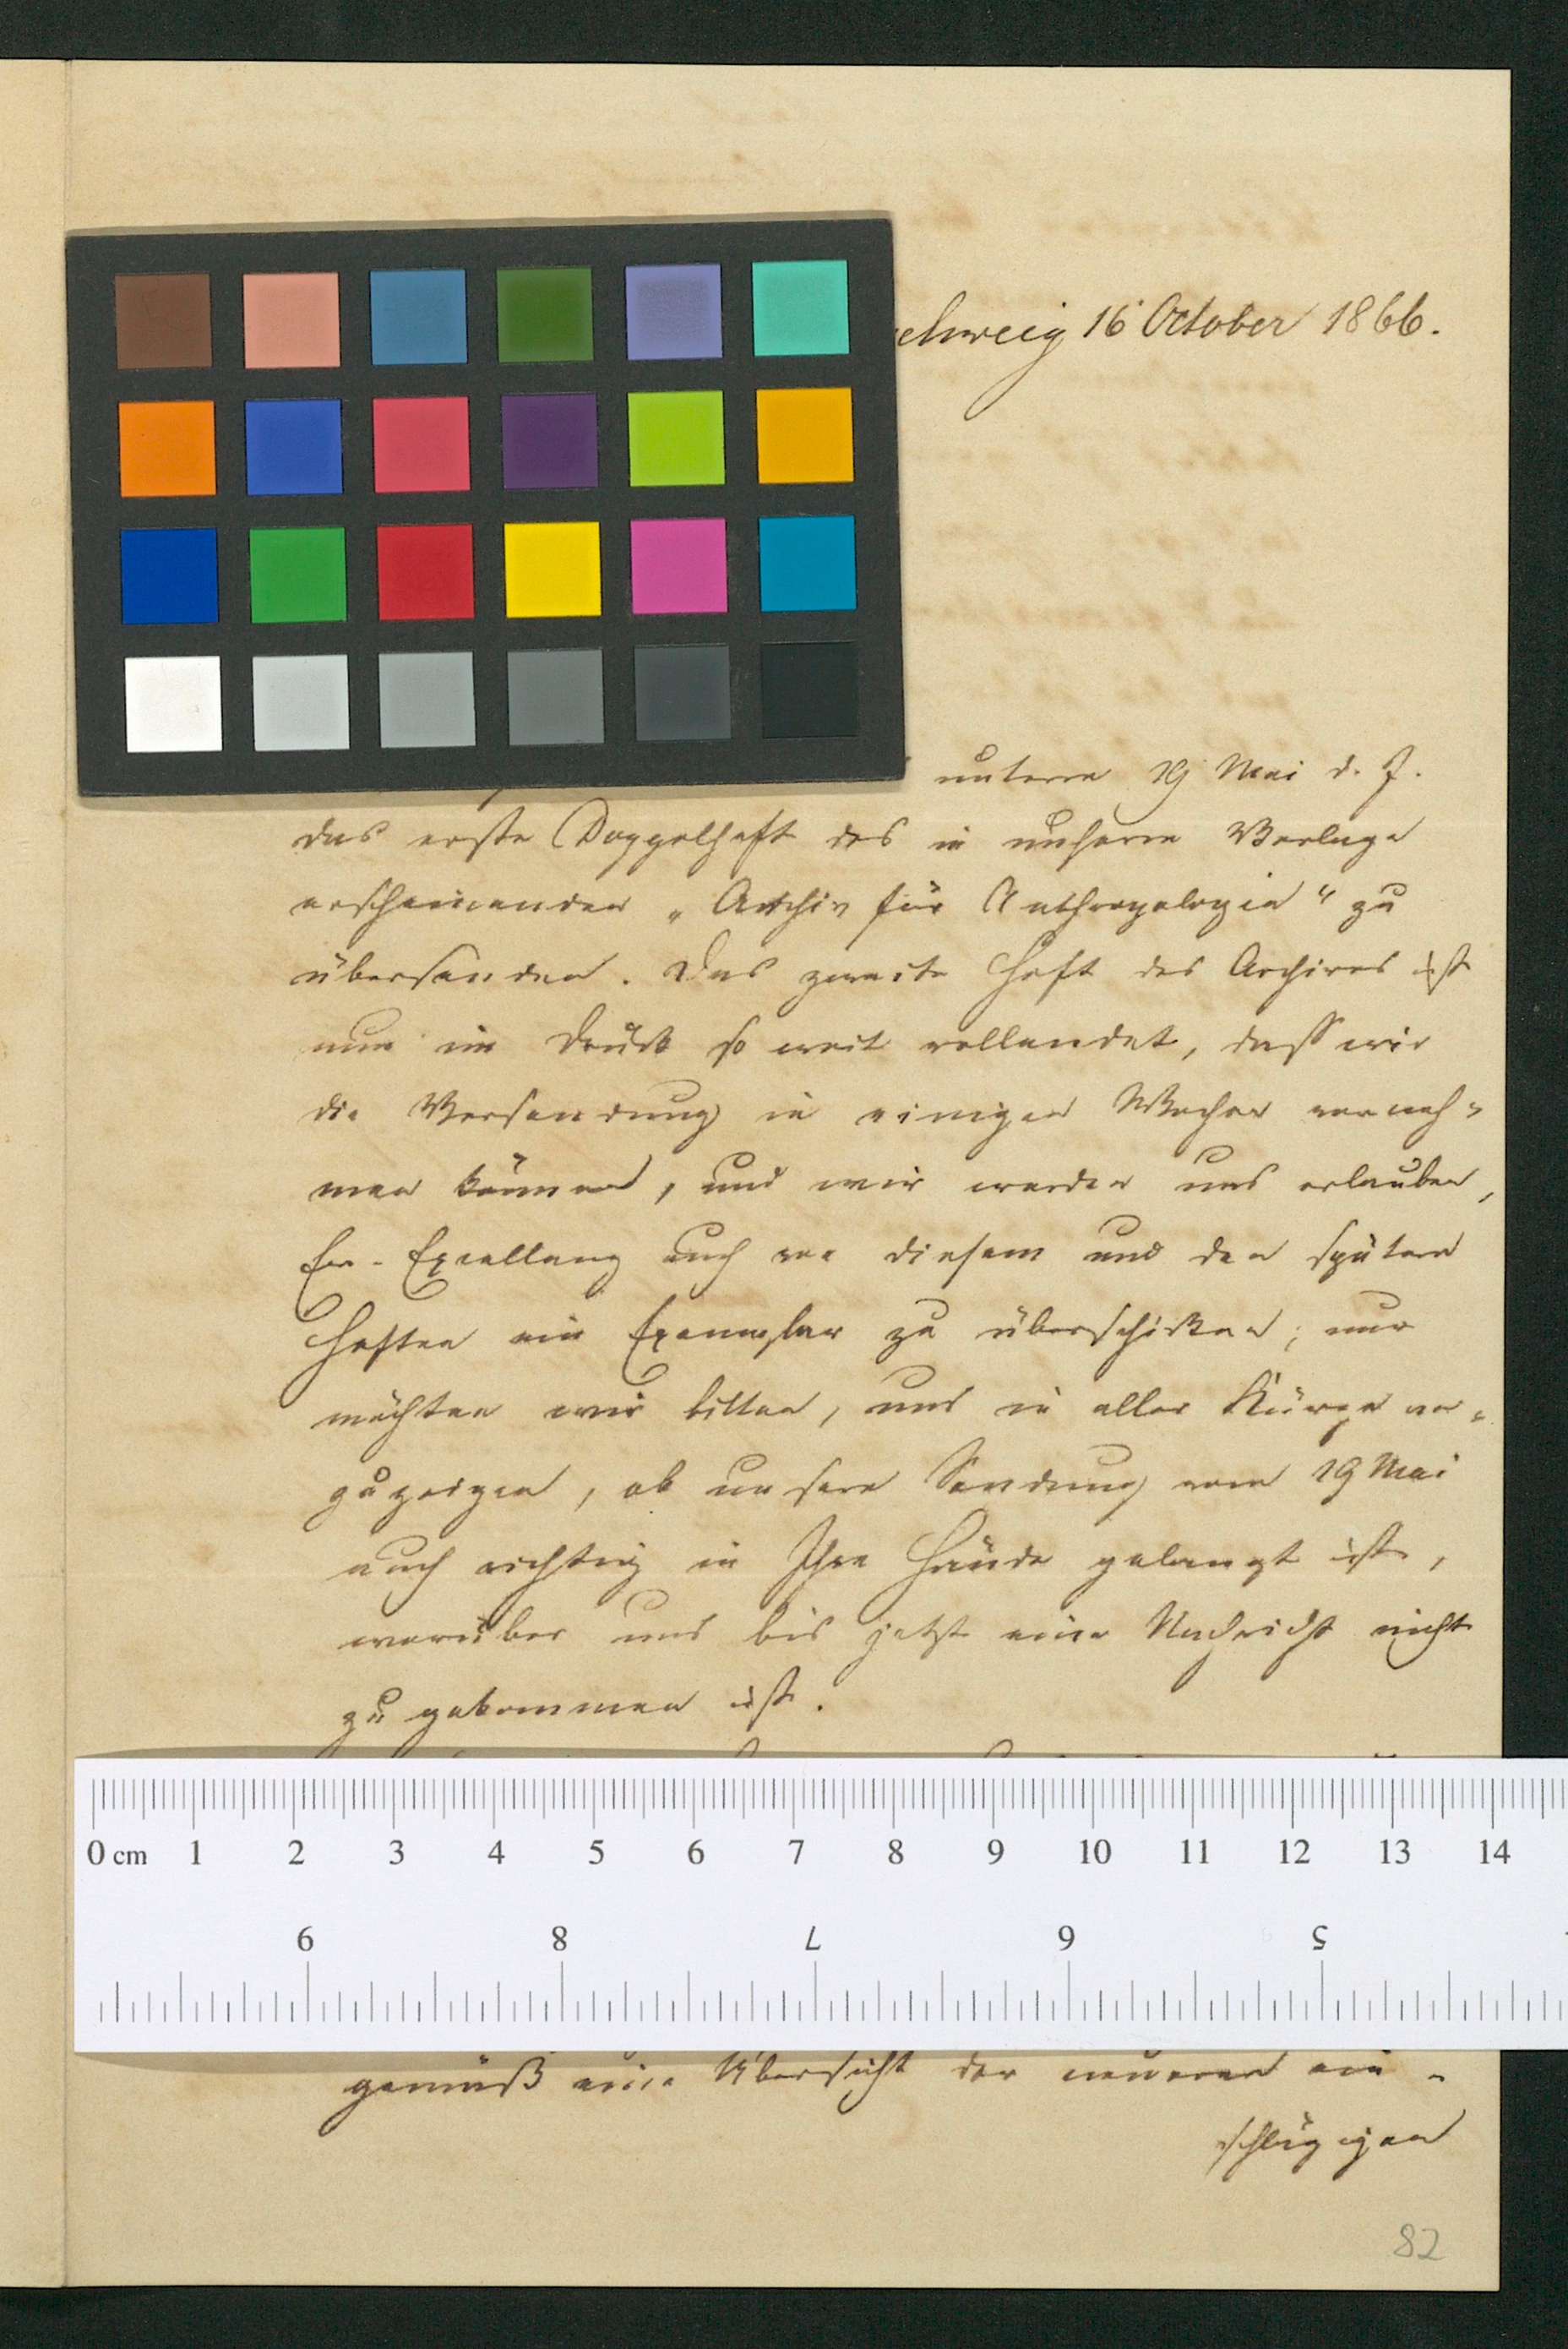 schweig 16 October 1866.
unterm 19 Mai d. J.
das erste Doppelheft des in unserm Verlage
erscheinenden „Archiv für Anthropologie“ zu
übersenden. Das zweite Heft des Archives ist
nun im Druck so weit vollendet, dass wir
die Versendung in einigen Wochen verneh-
men können, und wir werden uns erlauben,
Ew. Excellenz auch von diesem und den spätern
Heften ein Exemplar zu überschicken; nur
möchten wir bitten, uns in aller Kürze an-
zuzeigen, ob unsere Sendung vom 19 Mai
auch richtig in Ihre Hände gelangt ist,
worüber uns bis jetzt eine Nachricht nicht
zugekommen ist.
0 cm 1 2 3 4 5 6 7 8 9 10 11 12 13 14
9 8 7 6 5
gemäß eine Übersicht der neueren ein-
schlägigen
82